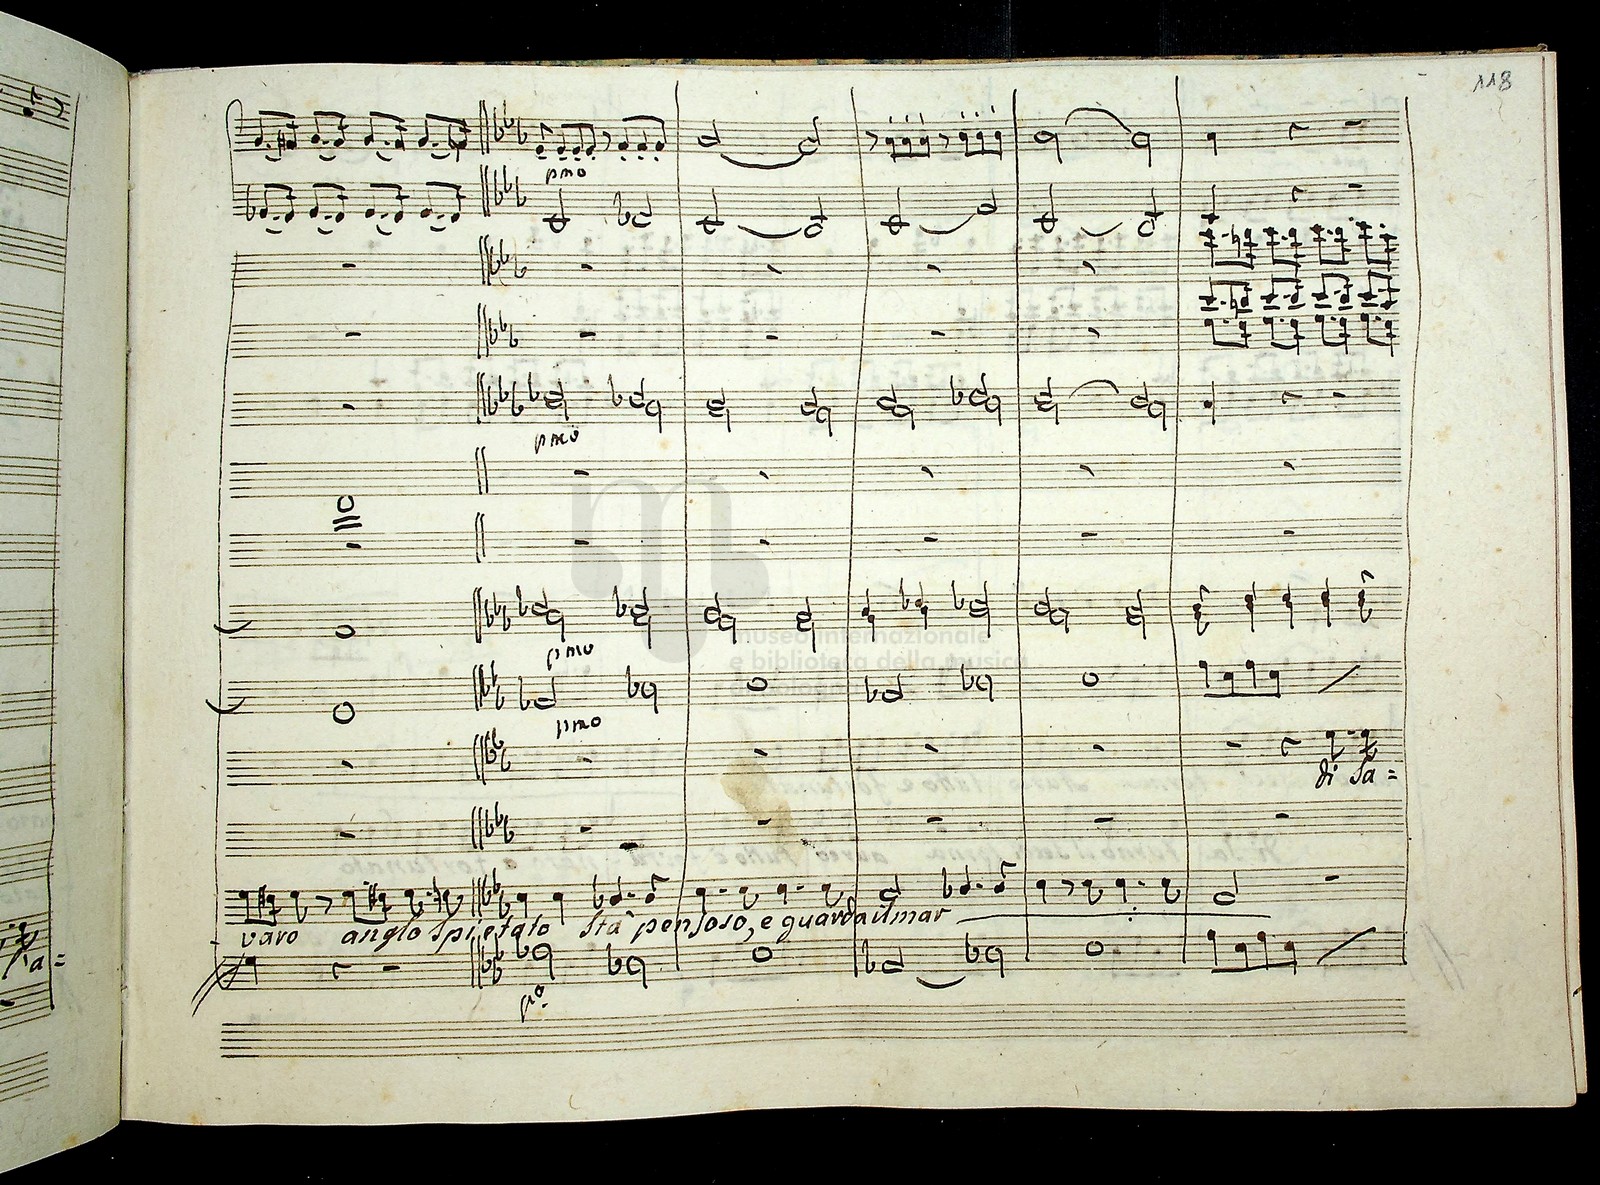 118
pmo
pmo
museo internazionale
e biblioteca della musica
pmo
pmo
di Sa =
varo anglo Spietato Sta pensoso, e guarda il mar
a =
po.